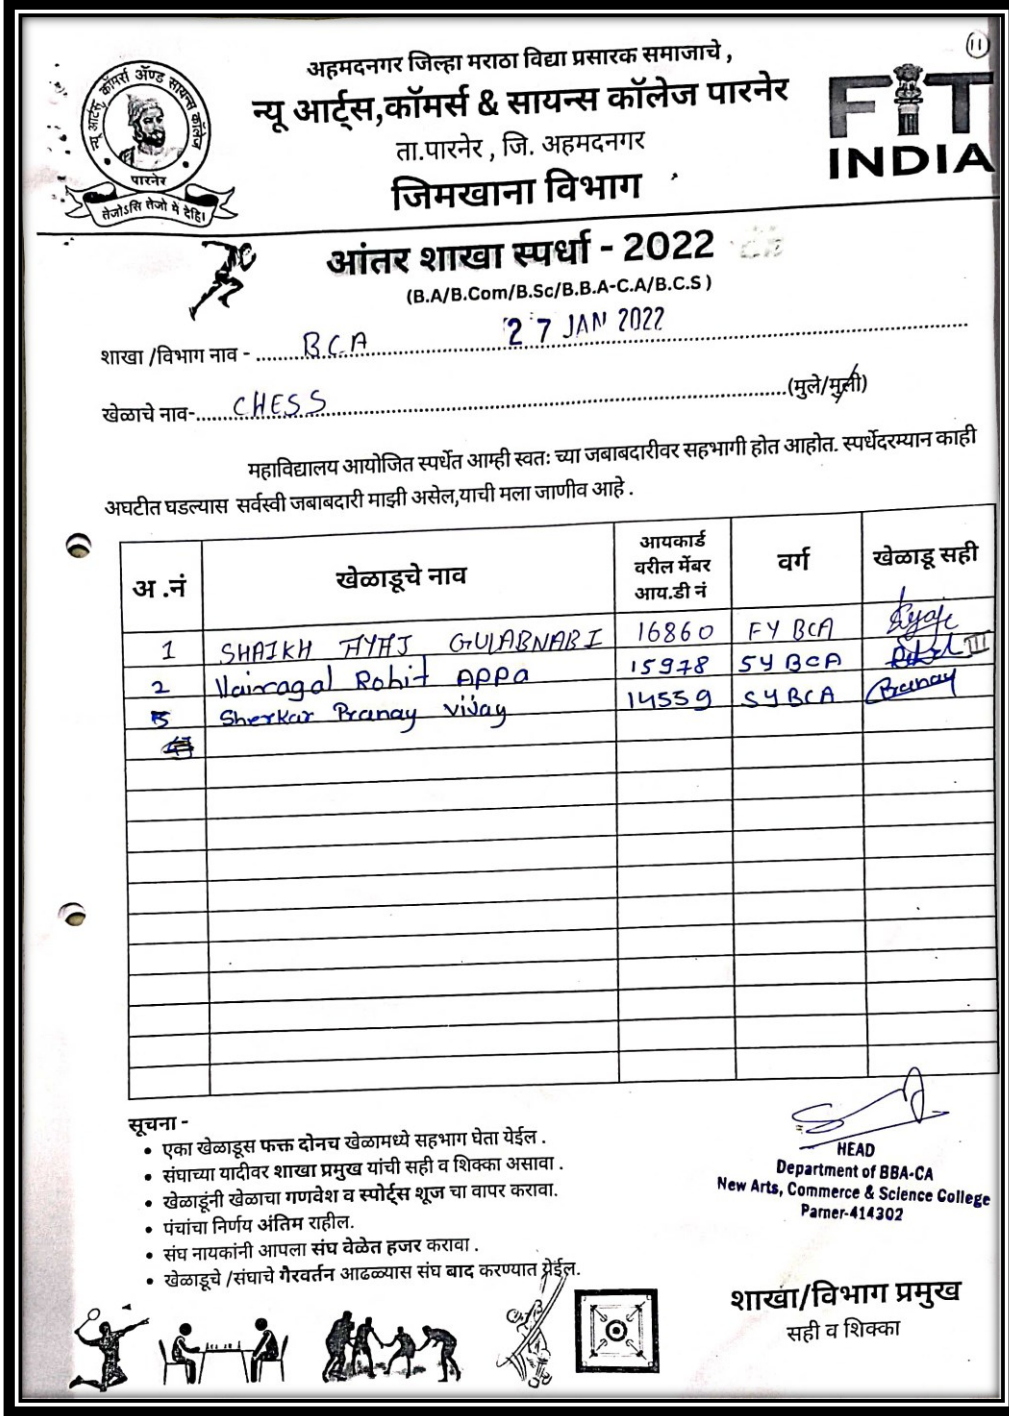 11
अहमदनगर जिल्हा मराठा विद्या प्रसारक समाजाचे ,
न्यू आर्ट्स,कॉमर्स & सायन्स कॉलेज पारनेर
ता.पारनेर , जि. अहमदनगर
जिमखाना विभाग
न्यू आर्ट्स कॉमर्स ॲण्ड सायन्स कॉलेज
पारनेर
तेजोऽसि तेजो मे देहि।
FIT
INDIA
आंतर शाखा स्पर्धा - 2022
(B.A/B.Com/B.Sc/B.B.A-C.A/B.C.S )
27 JAN 2022
शाखा /विभाग नाव - BCA
खेळाचे नाव- CHESS (मुले/मुली)
महाविद्यालय आयोजित स्पर्धेत आम्ही स्वतः च्या जबाबदारीवर सहभागी होत आहोत. स्पर्धेदरम्यान काही
अघटीत घडल्यास सर्वस्वी जबाबदारी माझी असेल,याची मला जाणीव आहे .
अ .नं खेळाडूचे नाव आयकार्ड वरील मेंबर आय.डी नं वर्ग खेळाडू सही
1 SHAIKH AYAJ GULABNABI 16860 FY BCA
2 Vairagal Rohit APPa 15978 SY BCA
3 Sherkar Pranay Vijay 14559 SYBCA Pranay
सूचना -
• एका खेळाडूस फक्त दोनच खेळामध्ये सहभाग घेता येईल .
• संघाच्या यादीवर शाखा प्रमुख यांची सही व शिक्का असावा .
• खेळाडूंनी खेळाचा गणवेश व स्पोर्ट्स शूज चा वापर करावा.
• पंचांचा निर्णय अंतिम राहील.
• संघ नायकांनी आपला संघ वेळेत हजर करावा .
• खेळाडूचे /संघाचे गैरवर्तन आढळ्यास संघ बाद करण्यात येईल.
HEAD
Department of BBA-CA
New Arts, Commerce & Science College
Parner-414302
शाखा/विभाग प्रमुख
सही व शिक्का